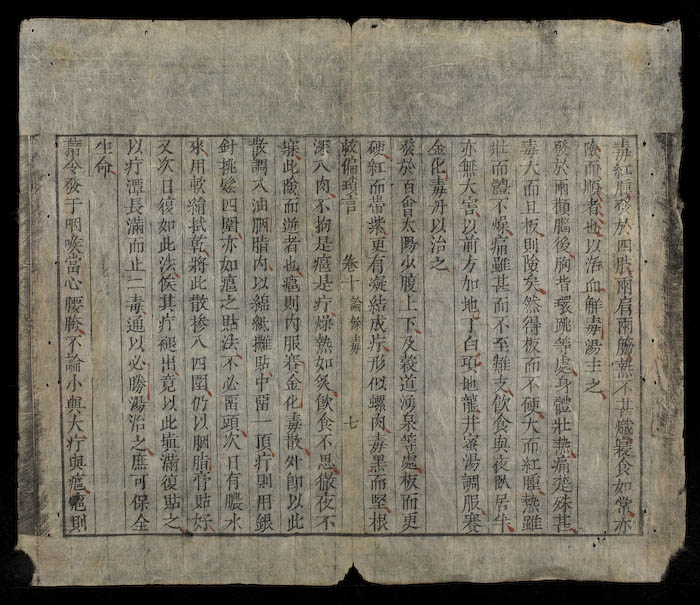 毒紅腫發於四肢兩肩兩膀熱不甚熾寢食如常亦
險而順者也以治血解毒湯主之
發於兩顴腮後胸背環跳等處身體壯熱痛楚殊甚
毒大而且板則險矣然得板而不硬大而紅腫熱雖
壯而體不燥痛雖甚而不至難支飲食與夜臥居半
亦無大害以前方加地丁白項地龍井蜜湯調服賽
金化毒丹以治之
發於百會太陽少腹上下及穀道湧泉等處板而更
硬紅而帶紫更有凝結成疔形似螺肉毒黑而堅根
救偏瑣言 卷十 論餘毒 七
深入肉不拘是是疔燥熱如炙飲食不思徹夜不
寐此險而逆者也則內服賽金化毒散外卽以此
散調入油胭脂內以綿紙攤貼中留一頂疔則用銀
針挑鬆四圍亦如之貼法不必留頭次日有膿水
來用軟綿拭乾將此散摻入四圍仍以胭脂膏貼好
又次日復如此法俟其疔褪出竟以此填滿復貼之
以疔潭長滿而止二毒通以必勝湯治之庶可保全
生命
令發于咽喉當心腰不論小與大疔與則